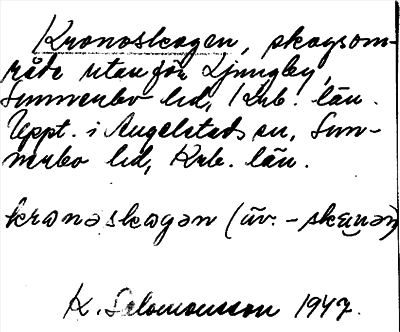 Kronoskogen, skogsom-
råde utanför Ljungby,
Sunnerbo hd, Krb. län.
Uppt. i Angelstads sn, Sun-
nerbo hd, Krb. län.
krɷnəskɷgən (äv. -skɷ
K. Salomonsson 1947.